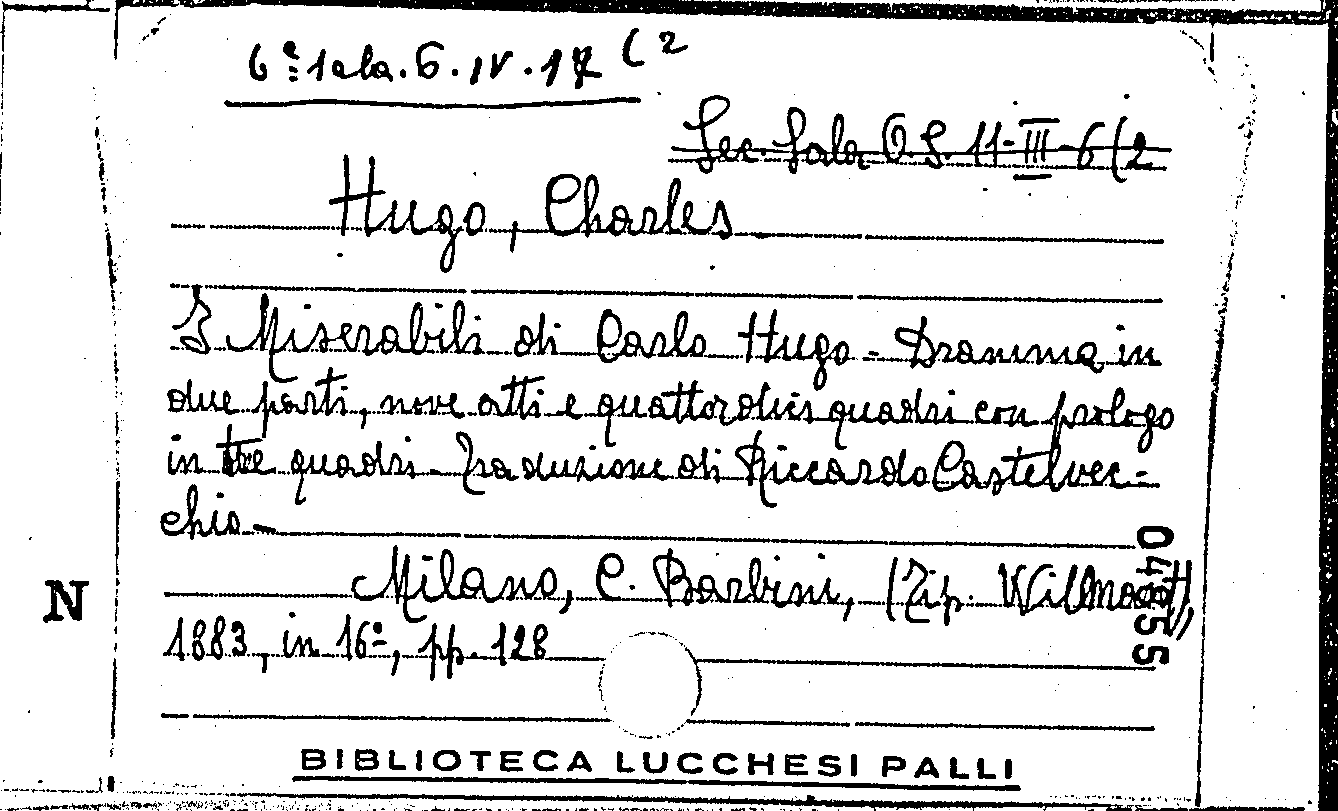 6ª sala. 6. IV. 17 (2
Sec. Sala O.S. 11-III-6(2
Hugo, Charles
I Miserabili di Carlo Hugo - Dramma in
due parti, nove atti e quattordici quadri con prologo
in tre quadri - Traduzione di Riccardo Castelvec=
chio -
Milano, C. Barbini, (Tip. Wilmant),
1883, in 16º, pp. 128
04855
N
BIBLIOTECA LUCCHESI PALLI